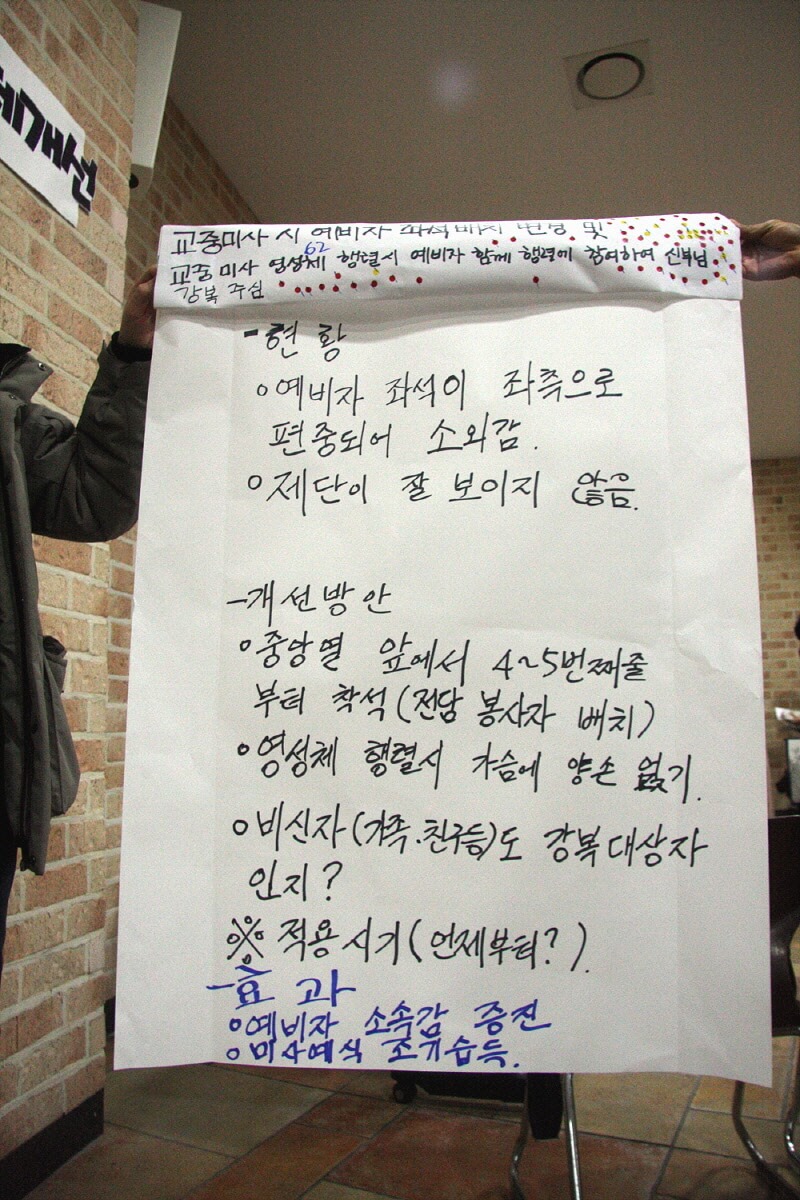 체개선
교중미사 시 예비자 좌석배치 변경 및
62
교중미사 영성체 행렬시 예비자 함께 행렬에 참여하여 신부님
강복 주심
-현황
o예비자 좌석이 좌측으로
편중되어 소외감.
o제단이 잘 보이지 않음.
-개선방안
o중앙열 앞에서 4~5번째줄
부터 착석(전담 봉사자 배치)
o영성체 행렬시 가슴에 양손 얹기.
o비신자(가족.친구등)도 강복대상자
인지?
※적용시기(언제부터?).
-효과
o예비자 소속감 증진
o미사예식 조기습득.